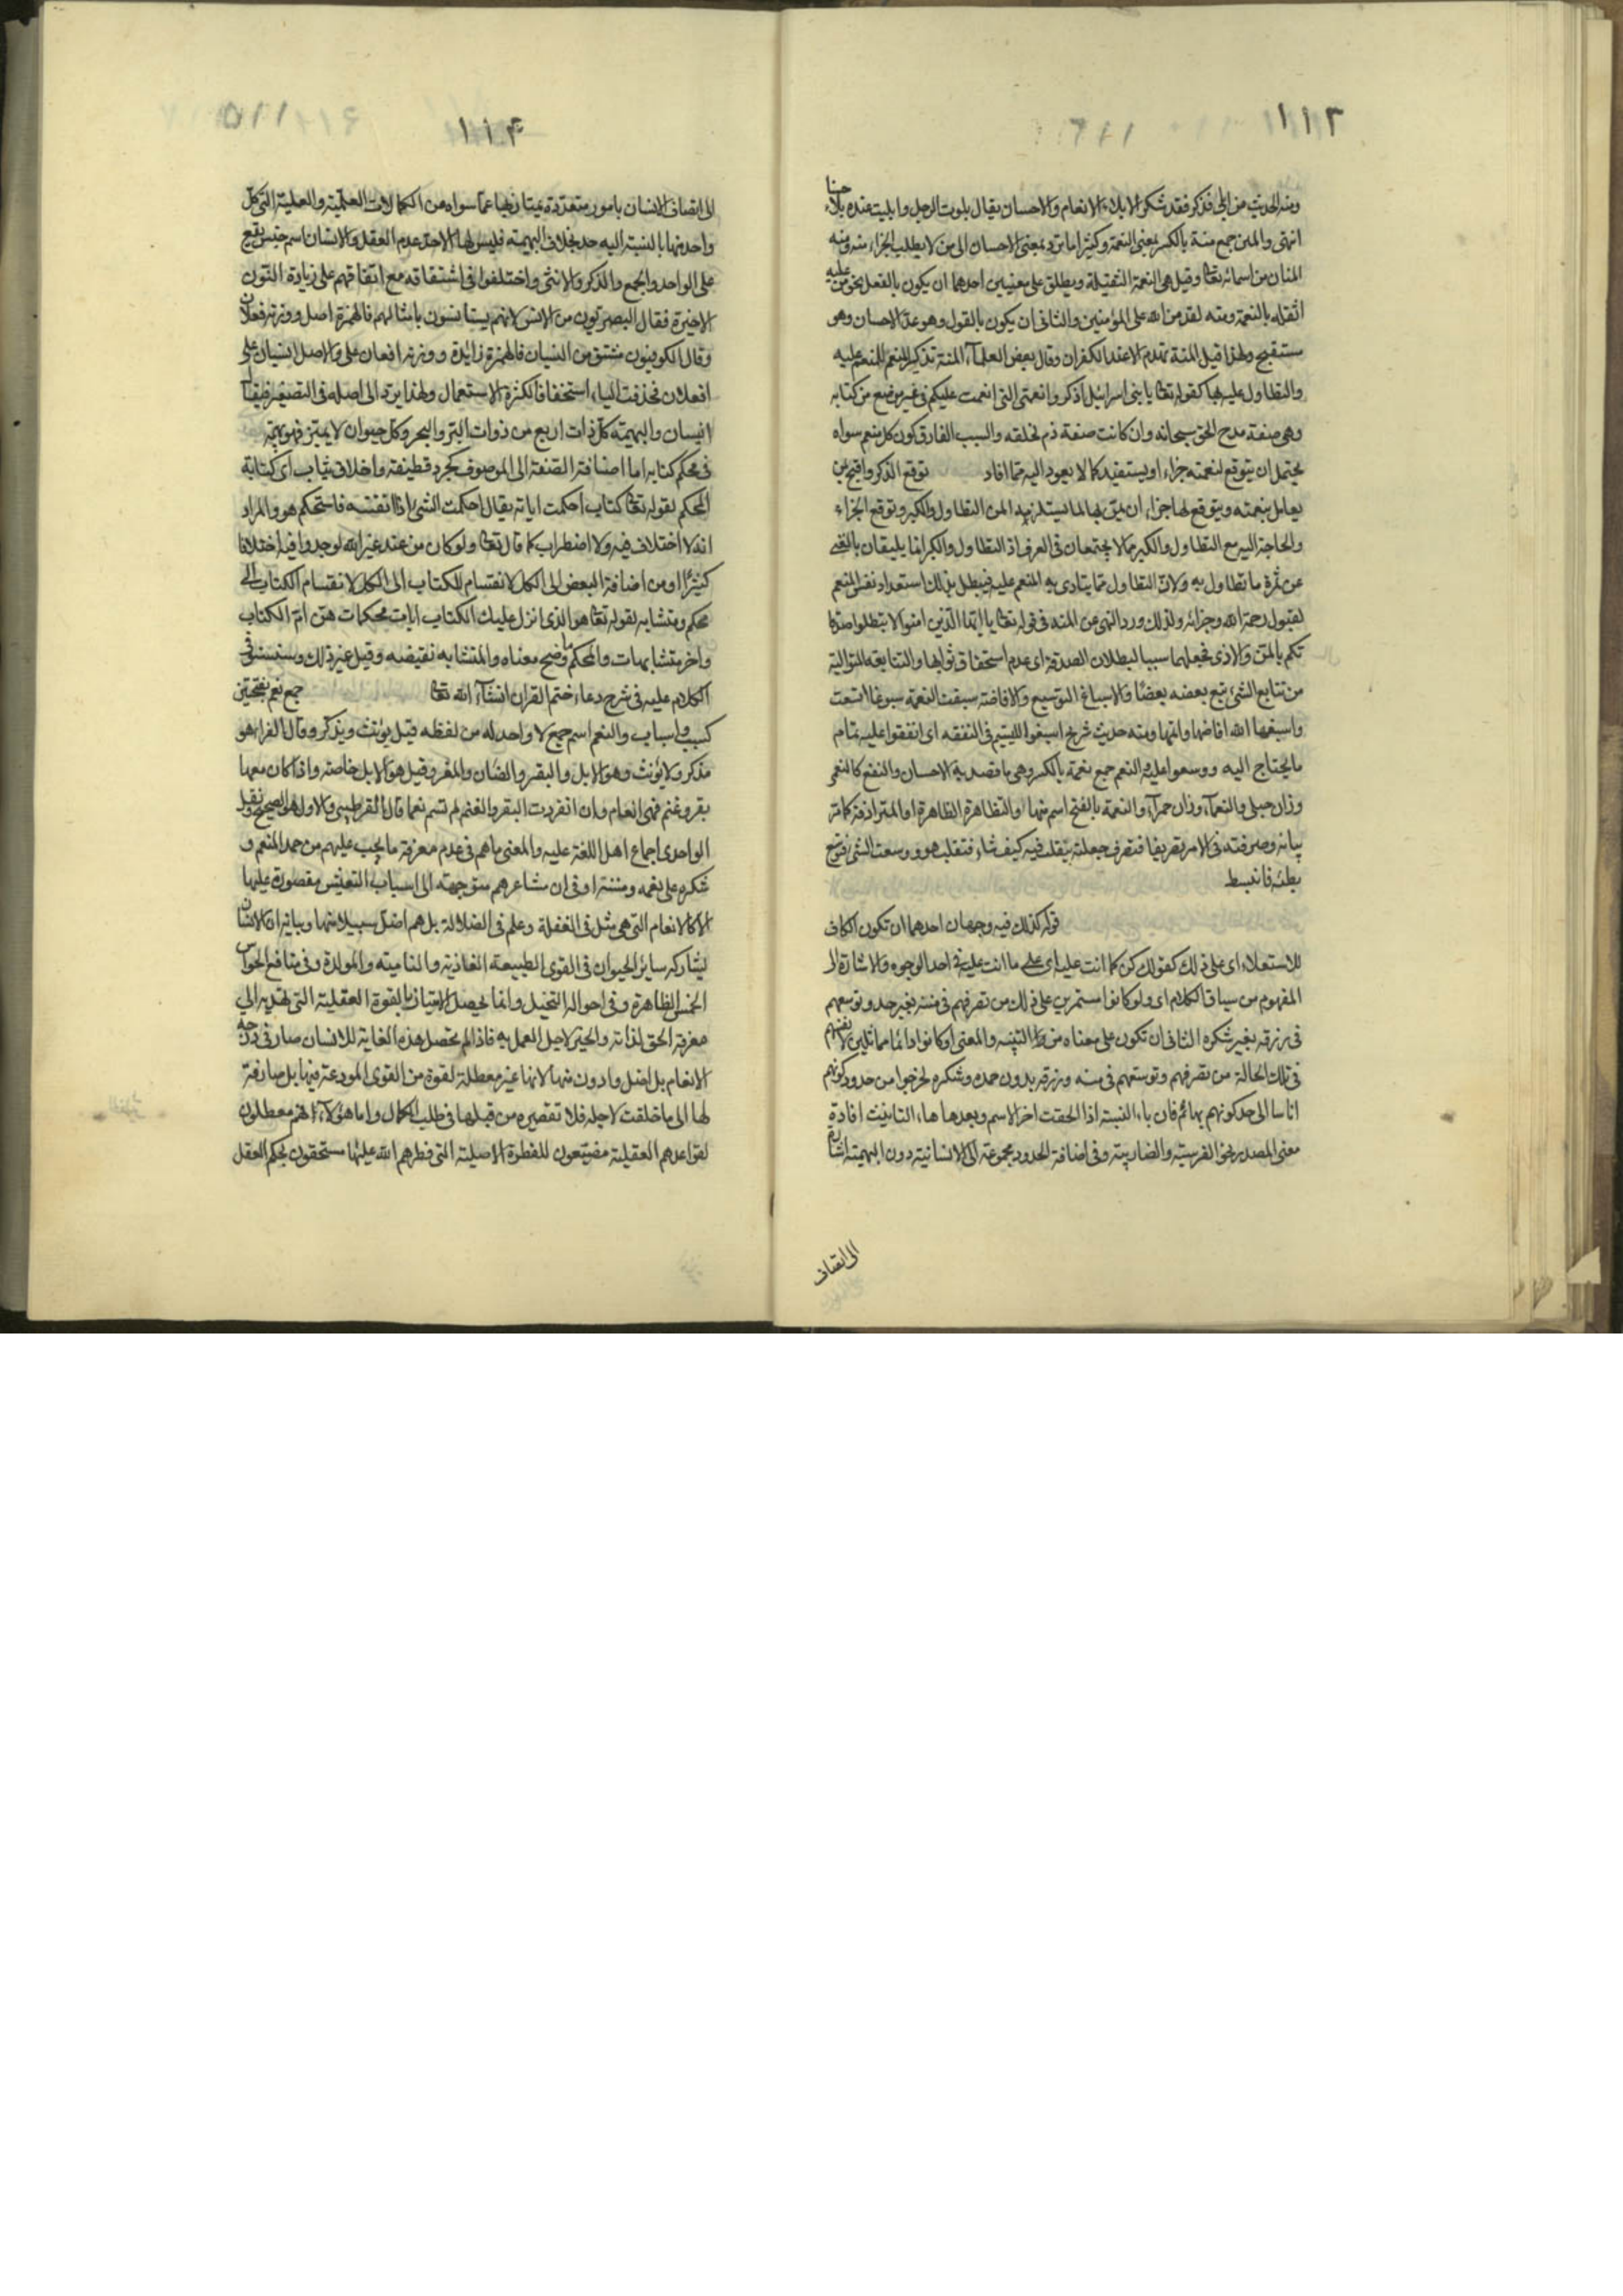 ١١٣
ومنه الحديث من ابلى فذكر فقد شكر الابلاء الانعام والاحسان يقال بلوت الرجل وابليت عنده بلاء حسنا
انتهى والمنن جمع منة بالكسر بمعنى النعمة وكثيرا ما ترد بمعنى الاحسان الى من لا يطلب الجزاء منه ومنه
المنان من اسمائه تعا وقيل هى النعمة الثقيلة ويطلق على معنيين احدهما ان يكون بالفعل نحو من عليه
اثقله بالنعمة ومنه لقد من الله على المؤمنين والثانى ان يكون بالقول وهو عد الاحسان وهو
مستقبح ولهذا قيل المنة تهدم الا عند الكفران وقال بعض العلمآء المنة تذكير المنعم للمنعم عليه
والتطاول عليه بها كقوله تعا يا بنى اسرائيل اذكروا نعمتى التى انعمت عليكم فى غير موضع من كتابه
وهى صفة مدح الحق سبحانه وان كانت صفة ذم لخلقه والسبب الفارق كون كل منعم سواه
يحتمل ان يتوقع لنعمته جزاء او يستفيد كمالا يعود اليه مما افاد توقع الذكر واقبح بمن
يعامل بنعمته ويتوقع لها جزاء ان يمن بها لما يستلزمه المن من التطاول والكبر وتوقع الجزاء
والحاجة اليه مع التطاول والكبر مما لا يجتمعان فى العرف اذ التطاول والكبر انما يليقان بالغنى
عن ثمرة ما تطاول به ولان التطاول مما يتاذى به المنعم عليه فيبطل بذلك استعداد نفس المنعم
لقبول رحمة الله وجزائه ولذلك ورد النهى عن المنة فى قوله تعا يا ايها الذين امنوا لا تبطلوا صدقا
تكم بالمن والاذى فجعلهما سببا لبطلان الصدقة اى عدم استحقاق ثوابها والمتتابعة المتوالية
من تتابع الشئ تبع بعضه بعضا والاسباغ التوسيع والافاضة سبغت النعمة سبوغا اتسعت
واسبغها الله افاضها واتمها ومنه حديث شريح اسبغوا لليتيم فى النفقه اى انفقوا عليه تمام
ما يحتاج اليه ووسعوا عليه والنعم جمع نعمة بالكسر وهى ما قصد به الاحسان والنفع كالنعمى
وزان حبلى والنعمآء وزان حمرآء والنعمة بالفتح اسم منها والمتظاهرة الظاهرة او المترادفة كما مر
بيانه وصرفته فى الامر تصريفا فتصرف جعلته يتقلب فيه كيف شاء فتقلب هو ووسعت الشئ فتوسع
بسطته فانبسط
قوله كذلك فيه وجهان احدهما ان تكون الكاف
للاستعلاء اى على ذلك كقولك كن كما انت عليه اى على ما انت عليه فى احد الوجوه والاشارة الى
المفهوم من سياق الكلام اى ولو كانوا مستمرين على ذلك من تصرفهم فى مننه بغير حمد وتوسعهم
فى رزقه بغير شكره الثانى ان تكون على معناها من التشبيه والمعنى لو كانوا دائما مماثلين لانفسهم
فى تلك الحالة من تصرفهم وتوسعهم فى مننه ورزقه بدون حمده وشكره لخرجوا من حدود كونهم
اناسا الى حد كونهم بهائم فان ياء النسبة اذا الحقت اخر الاسم وبعدها هاء التانيث افادة
معنى المصدر نحو الفرسية والضاربية وفى اضافة الحدود مجموعة الى الانسانية دون البهيمية اشارة
الى اتصاف
١١٤
الى اتصاف الانسان بامور متعددة يمتاز بها عما سواه من الكمالات العلمية والعملية التى كل
واحد منها بالنسبة اليه حد بخلاف البهيمة فليس لها الا حد عدم العقل والانسان اسم جنس يقع
على الواحد والجمع والذكر والانثى واختلفوا فى اشتقاقه مع اتفاقهم على زيادة النون
الاخيرة فقال البصريون من الانس لانهم يستانسون بامثالهم فالهمزة اصل ووزنه فعلان
وقال الكوفيون مشتق من النسيان فالهمزة زائدة ووزنه افعان على والاصل انسيان على
افعلان فحذفت الياء استخفافا لكثرة الاستعمال ولهذا يرد الى اصله فى التصغير فيقال
انيسيان والبهيمة كل ذات اربع من ذوات البر والبحر وكل حيوان لا يميز فهو بهيمة
فى محكم كتابه اما اضافة الصفة الى الموصوف كجرد قطيفة واخلاق ثياب اى كتابه
المحكم لقوله تعا كتاب احكمت اياته يقال احكمت الشئ اذا اتقنته فاستحكم هو والمراد
انه لا اختلاف فيه ولا اضطراب كما قال تعا ولو كان من عند غير الله لوجدوا فيه اختلافا
كثيرا او من اضافة البعض الى الكل لانقسام الكتاب الى
محكم ومتشابه لقوله تعا هو الذى انزل عليك الكتاب ايات محكمات هن ام الكتاب
واخر متشابهات والمحكم ما وضح معناه والمتشابه نقيضه وقيل غير ذلك وسنستوفى
الكلام عليه فى شرح دعاء ختم القران انشآء الله تعا جمع نعم بفتحتين
كسبب واسباب والنعم اسم جمع لا واحد له من لفظه قيل يؤنث ويذكر وقال الفراء هو
مذكر ولا يؤنث وهو الابل والبقر والضان والمعز وقيل هو الابل خاصة واذا كان معها
بقر وغنم فهى انعام وان انفردت البقر والغنم لم تسم نعما قال القرطبى والاول هو الصحيح ونقل
الواحدى اجماع اهل اللغة عليه والمعنى ما هم فى عدم معرفة ما يجب عليهم من حمد المنعم و
شكره على نعمه ومننه او فى ان مشاعرهم متوجهة الى اسباب التعيش مقصورة عليها
الا كالانعام التى هى مثل فى الغفلة وعلم فى الضلالة بل هم اضل سبيلا منها وبيانه ان الانسان
يشاركه ساير الحيوان فى القوى الطبيعة الغاذية والنامية والمولدة وفى منافع الحواس
الخمس الظاهرة وفى احوال التخيل وانما يحصل الامتياز بالقوة العقلية التى تهديه الى
معرفة الحق لذاته والخير لاجل العمل به فاذا لم تحصل هذه الغاية للانسان صار فى درجه
الانعام بل اضل وادون منها لانها غير معطلة لقوة من القوى المودعة فيها بل صارفة
لها الى ما خلقت لاجله فلا تقصير من قبلها فى طلب الكمال واما هؤلآء فهم معطلون
لقواعدهم العقلية مضيعون للفطرة الاصلية التى فطرهم الله عليها مستحقون بحكم العقل